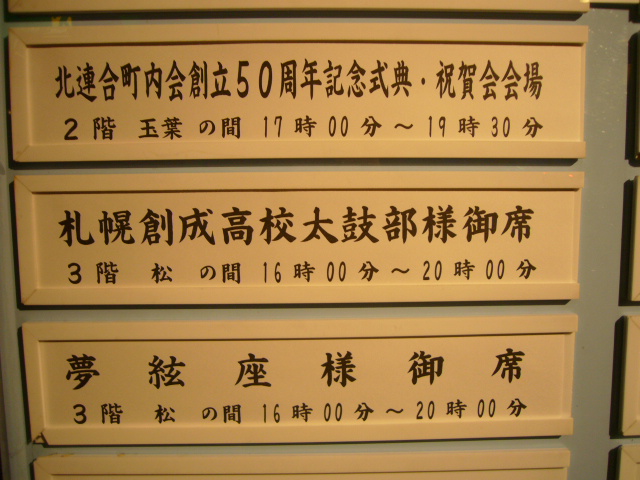 北連合町内会創立50周年記念式典・祝賀会会場
2階 玉葉の間 17時00分～19時30分
札幌創成高校太鼓部様御席
3階 松の間 16時00分～20時00分
夢絃座様御席
3階 松の間 16時00分～20時00分